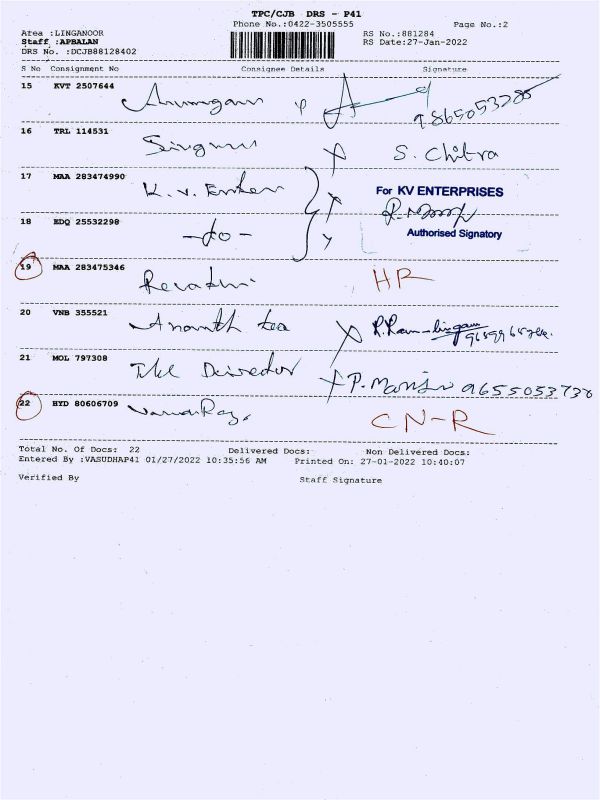 TPC/CJB DRS - P41
Phone No.:0422-3505555 Page No.:2
Area :LINGANOOR RS No.:881284
Staff :APBALAN RS Date:27-Jan-2022
DRS No. :DCJB88128402
S No Consignment No Consignee Details Signature
15 KVT 2507644
16 TRL 114531 S. Chitra
17 MAA 283474990 K.V. Enter
For KV ENTERPRISES
18 EDQ 25532298 -do-
Authorised Signatory
19 MAA 283475346 Revathi HR
20 VNB 355521 Ananth tea
21 MOL 797308 The Director 9655053738
22 BYD 80606709 CN-R
Total No. Of Docs: 22 Delivered Docs: Non Delivered Docs:
Entered By :VASUDHAP41 01/27/2022 10:35:56 AM Printed On: 27-01-2022 10:40:07
Verified By Staff Signature